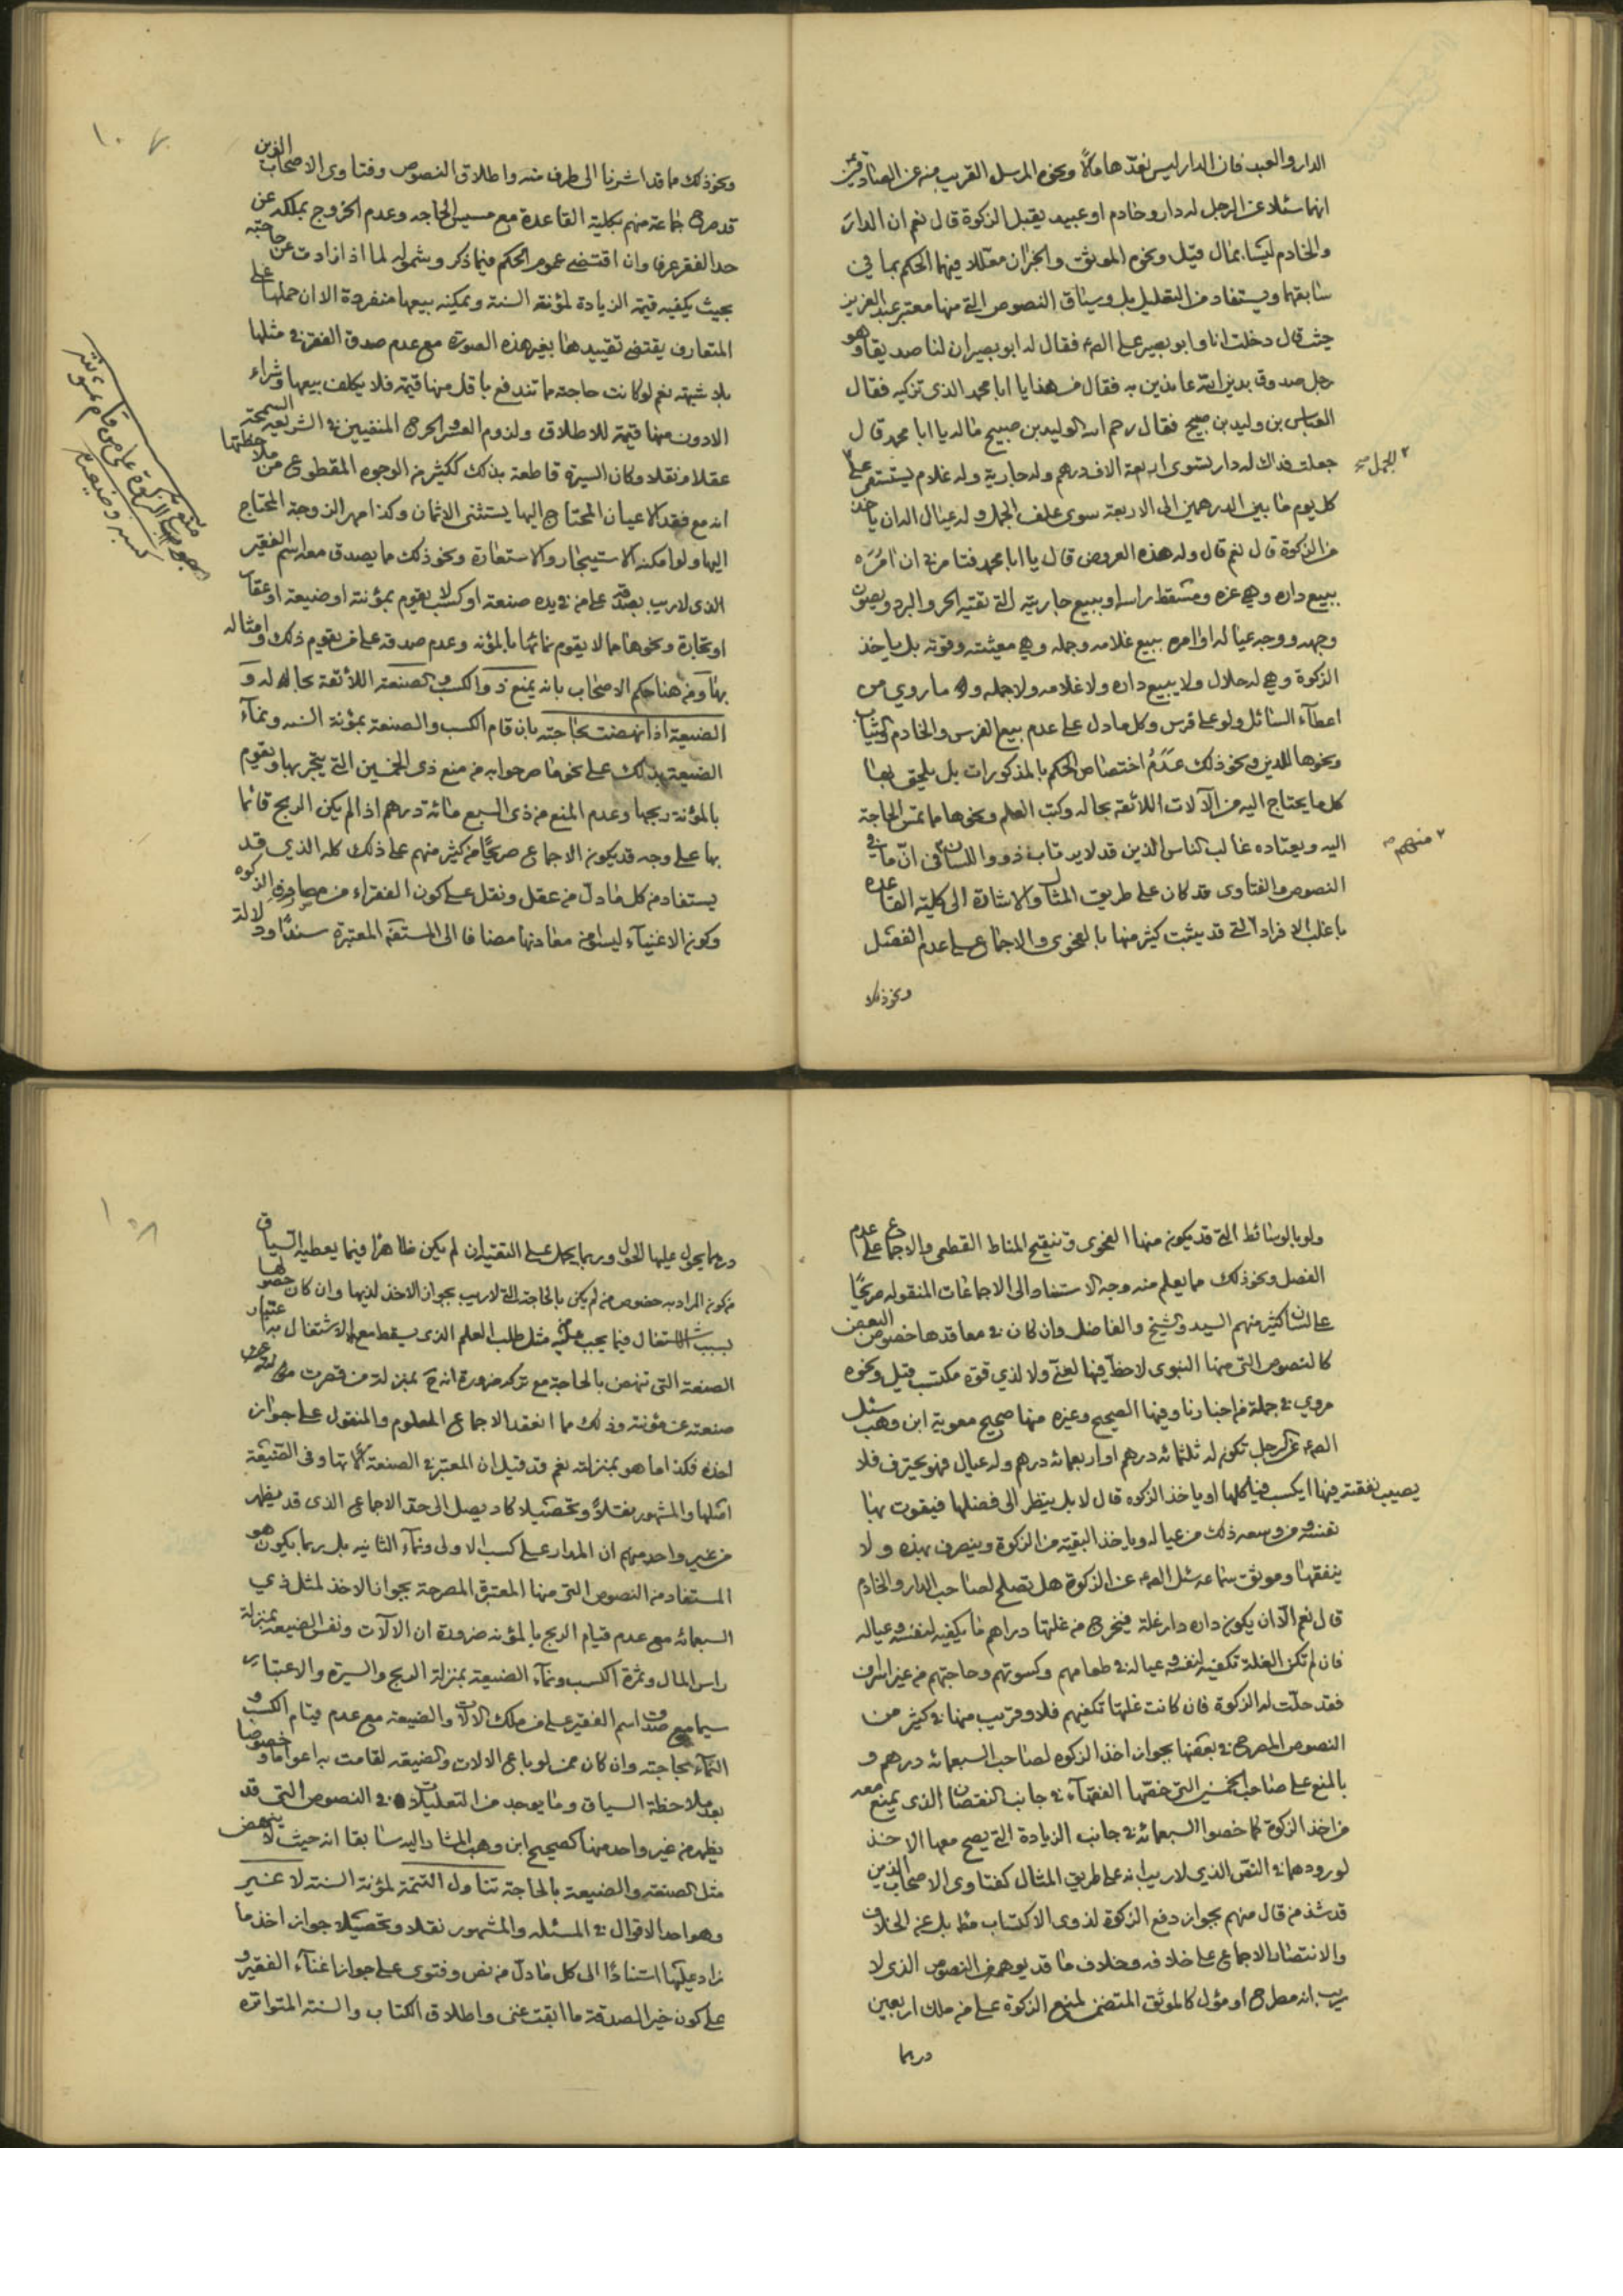 الدار والعبد فان الدار ليس نعدّها مالا ونحوه المرسل القريب منه عن الصادقين
انهما سئلا عن الرجل له دار وخادم او عبد يقبل الزكوة قال نعم ان الدار
والخادم ليسا بمال قيل ونحوه الموثق والخبران معللا فيهما الحكم بما في
سابقهما ويستفاد من التعليل بل وسياق النصوص التى منها معتبر عبد العزيز
حيث قال دخلت انا وابو بصير على الصء فقال له ابو بصير ان لنا صديقا وهو
رجل صدوق يدين الله بما ندين به فقال من هذا يا ابا محمد الذى تزكيه فقال
العباس بن وليد بن صبيح فقال رحم الله الوليد بن صبيح ما له يا ابا محمد قال
جعلت فداك له دار تسوى اربعة الاف درهم وله جارية وله غلام يستقى على
الجمل صح
كل يوم ما بين الدرهمين الى الاربعة سوى علف الجمل وله عيال اله ان ياخذ
من الزكوة قال نعم قال وله هذه العروض قال يا ابا محمد فتامرنى ان امره
ببيع داره وهى عزه ومسقط راسه او ببيع جاريته التى تقيه الحر والبرد ويصون
وجهه ووجه عياله او امره ببيع غلامه وجمله وهى معيشته وقوته بل ياخذ
الزكوة وهى له حلال ولا يبيع داره ولا غلامه ولا جمله وله ما روي من
اعطآء السائل ولو على فرس وكل ما دل على عدم بيع الفرس والخادم والثياب
ونحوها للدين ونحو ذلك عدم اختصاص الحكم بالمذكورات بل يلحق بها
كل ما يحتاج اليه من الآلات اللائقة بحاله وكتب العلم ونحوها مما تمس الحاجة
اليه ويعتاده غالب الناس الذين قد لا يرتاب ذوو اللسان فى انّ ما فى
منهم صح
النصوص والفتاوى قد كان على طريق المثال والاشارة الى كلية القاعدة
باغلب الافراد التى قد يثبت كثير منها بالفحوى والاجماع على عدم الفصل
ونحو ذلك
ونحو ذلك مما قد اشرنا الى طرف منه واطلاق النصوص وفتاوى الاصحاب الذين
قد صرح جماعة منهم بكلية القاعدة مع مسيس الحاجه وعدم الخروج بملكه عن
حد الفقر عرفا وان اقتضى عموم الحكم فيما ذكر وشموله لما اذا زادت عن حاجته
بحيث يكفيه قيمة الزيادة لمؤنة السنة ويمكنه بيعها منفردة الا ان حملها على
المتعارف يقتضى تقييدها بغير هذه الصورة مع عدم صدق الفقر فى مثلها
بلا شبهة نعم لو كانت حاجته مما تندفع باقل منها قيمة فلا يكلف بيعها وشراء
الادون منها قيمة للاطلاق ولزوم العسر والحرج المنفيين فى الشريعة السمحة
عقلا ونقلا وكان السيرة قاطعة بذلك ككثير من الوجوه المقطوع من ملاحظتها
انه مع فقد الاعيان المحتاج اليها يستثنى الاثمان وكذا مهر الزوجة المحتاج
اليها ولو امكنه الاستيجار والاستعارة ونحو ذلك مما يصدق معه اسم الفقير
الذى لا ريب بصدقه على من فى يده صنعة او كسب لا يقوم بمؤنته او ضيعة او عقار
او تجارة ونحوها مما لا يقوم نمائها بالمؤنه وعدم صدقه على من يقوم ذلك وامثاله
بها ومن هنا حكم الاصحاب بانه يمنع ذو الكسب والصنعة اللائقة بحاله و
الضيعة اذا نهضت بحاجته بان قام الكسب والصنعة بمؤنة السنه ونمآء
الضيعة بذلك على نحو ما صرحوا به من منع ذى الخمسين التى يتجر بها ويقوم
بالمؤنة ربحها وعدم المنع من ذى السبع مائة درهم اذا لم يكن الربح قائما
بها على وجه قد يكون الاجماع صريحا من كثير منهم على ذلك كله الذي قد
يستفاد من كل ما دل من عقل ونقل على كون الفقراء من مصارف الزكوة
وكون الاغنيآء ليسوا من معادنها مضافا الى المستفيضة المعتبرة سندا ودلالة
منع
وجوب الزكوة على من قام بمؤنته
كسبه وضيعته
ولو بالوسائط التى قد يكون منها الفحوى وتنقيح المناط القطعى والاجماع على عدم
الفصل ونحو ذلك مما يعلم منه وجه الاستناد الى الاجماعات المنقوله صريحا
على لسان كثير منهم السيد والشيخ والفاضل وان كان فى معاقدها خصوص البعض
كالنصوص التى منها النبوى لا حظّ فيها لغنى ولا لذي قوة مكتسب قيل ونحوه
مروي فى جملة من اخبارنا وفيها الصحيح وغيره منها صحيح معوية ابن وهب سئل
الصء عن الرجل تكون له ثلثمائة درهم او اربعمائة درهم وله عيال فهو يحترف فلا
يصيب نفقته فيها ايكسب فياكلها او ياخذ الزكوه قال لا بل ينظر الى فضلها فيقوت بها
نفسه ومن وسعه ذلك من عياله وياخذ البقية من الزكوة ويتصرف بهذه ولا
ينفقها وموثق سماعه سئل الصء عن الزكوة هل تصلح لصاحب الدار والخادم
قال نعم الّا ان يكون داره دار غلة فيخرج من غلتها دراهم ما يكفيه لنفسه وعياله
فان لم تكن الغلة تكفيه لنفسه وعياله فى طعامهم وكسوتهم وحاجتهم من غير اسراف
فقد حلّت له الزكوة فان كانت غلتها تكفيهم فلا وقريب منها فى كثير من
النصوص المصرح فى بعضها بجواز اخذ الزكوه لصاحب السبعمائه درهم و
بالمنع على صاحب الخمسين التى خصّها الفقهآء فى جانب النقصان الذى يمنع معه
من اخذ الزكوة كما خصوا السبعمائة فى جانب الزيادة التى يصح معها الاخذ
لورودهما فى النص الذي لا ريب انه على طريق المثال كفتاوى الاصحاب الذين
قد شذ من قال منهم بجواز دفع الزكوة لذوى الاكتساب مط بل عن الخلاف
والانتصار الاجماع على خلافه وخلاف ما قد يوهمه من النصوص الذى لا
ريب انه مطرح او مؤل كالموثق المتضمن لمنع الزكوة على من ملك اربعين
درهما
درهما يحول عليها الحول وربما يحمل على التقية ان لم يكن ظاهرا فيما يعطيه السياق
من كون المراد به خصوص من لم يكن بالحاجة التى لا ريب بجواز الاخذ لديها وان كان حصولها
بسبب الاشتغال فيما يجب مثل طلب العلم الذى يسقط معه الاشتغال به اعتبار
الصنعة التى تنهض بالحاجة مع تركه ضرورة انه ح بمنزلة من قصرت
صنعته عن مؤنته وذلك مما انعقد الاجماع المعلوم والمنقول على جواز
اخذه فكذا ما هو بمنزلته نعم قد قيل ان المعتبر فى الصنعة وفى الضيعة
اصلها والمشهور نقلا وتحصيلا كاد يصل الى حق الاجماع الذى قد يظهر
من غير واحد منهم ان المدار على كسب الاولى ونمآء الثانيه بل ربما يكون هو
المستفاد من النصوص التى منها المعتبرة المصرحة بجواز الاخذ لمثل ذي
السبعمائه مع عدم قيام الربح بالمؤنه ضرورة ان الالآت ونفس الضيعة بمنزلة
راس المال وثمرة الكسب ونمآء الضيعة بمنزلة الربح والسيرة والاعتبار
سيما مع صدق اسم الفقير على من ملك الالآت والضيعة مع عدم قيام الكسب و
النمآء بحاجته وان كان ممن لو باع الالات والضيعه لقامت به اعواما وخصوصا
بعد ملاحظة السياق وما يوجد من التعليلات فى النصوص التى قد
يظهر من غير واحد منها كصحيح ابن وهب المشار اليه سابقا انه حيث لا ينهض
مثل الصنعة والضيعة بالحاجة تناول التتمة لمؤنة السنة لا غير
وهو احد الاقوال فى المسئله والمشهور نقلا وتحصيلا جواز اخذ ما
زاد عليها استنادا الى كل ما دل من نص وفتوى على جواز اغنآء الفقير و
على كون خير الصدقة ما ابقت غنى واطلاق الكتاب والسنة المتواتره